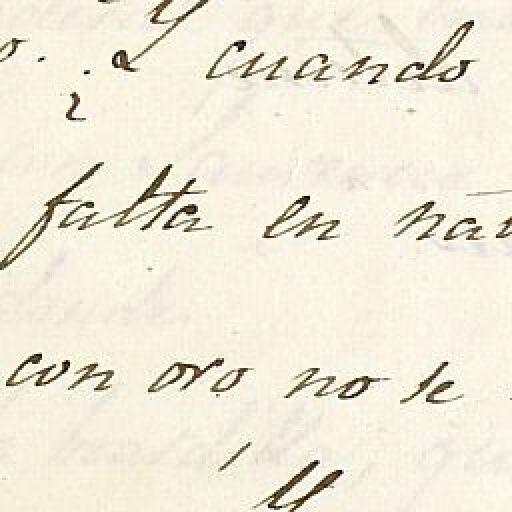 o. ¿Y cuando
falta en na
con oro no se